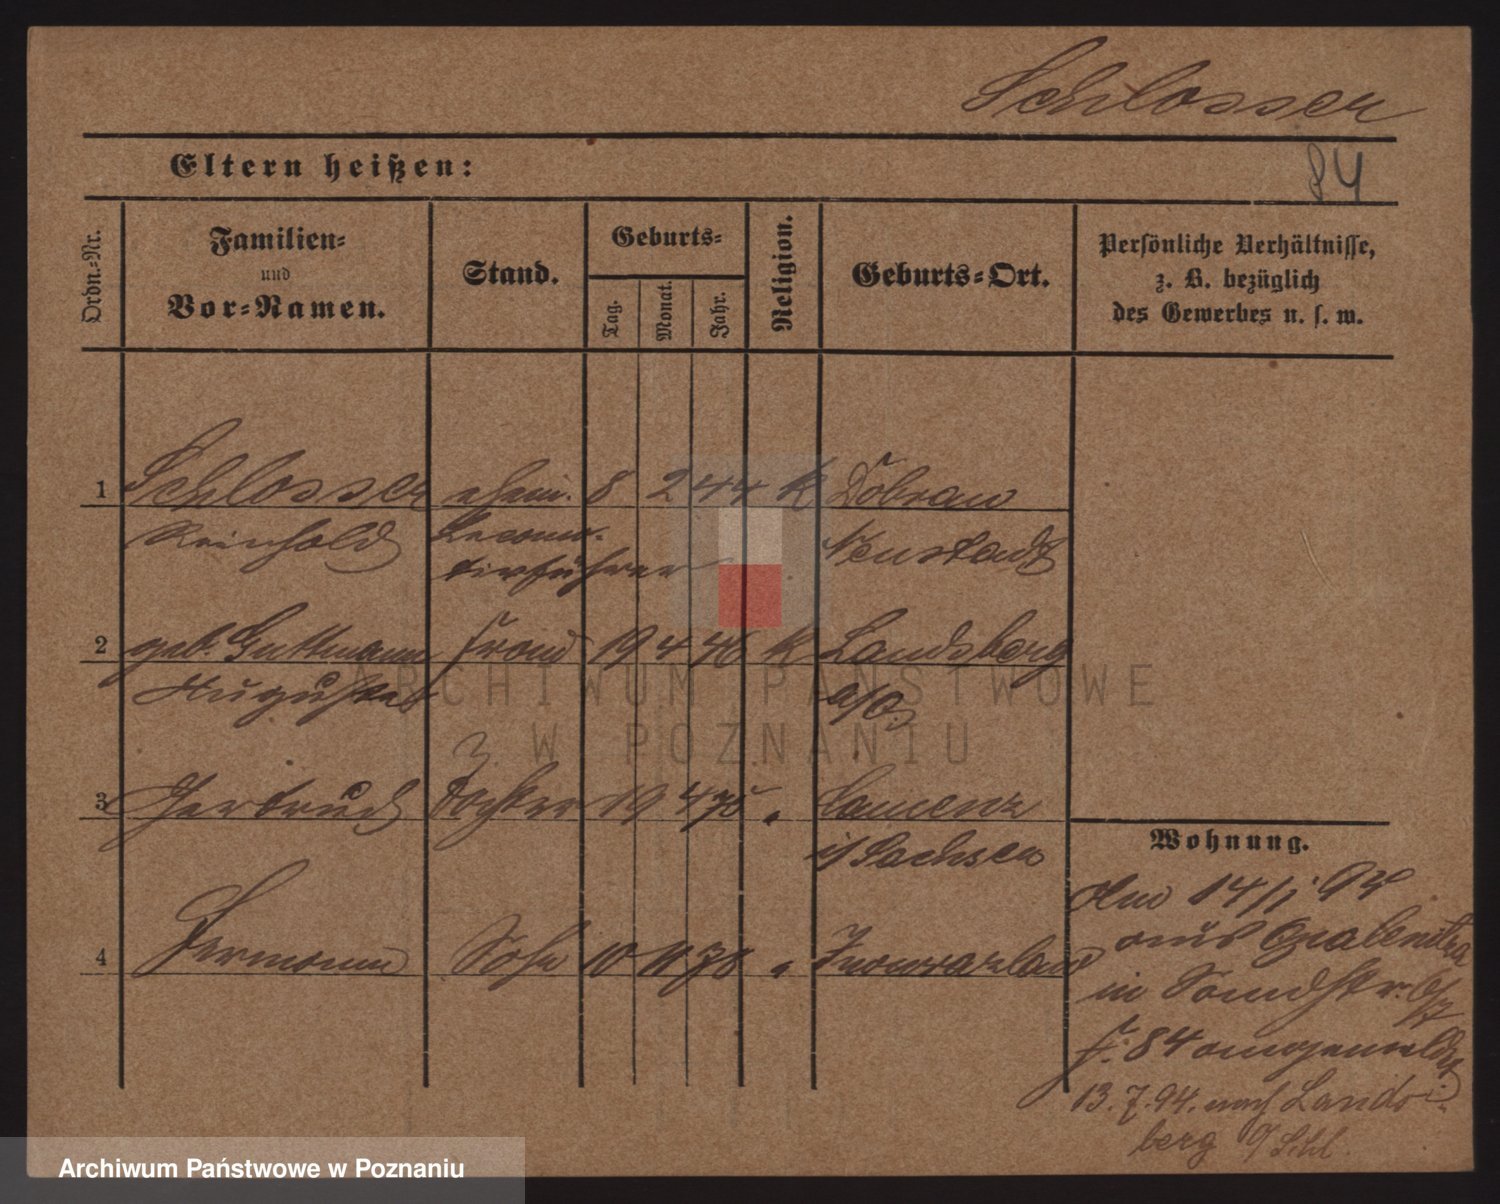 Schlosser
Eltern heißen:
84
Ordn.-Nr.
Familien-
und
Vor-Namen.
Stand.
Geburts-
Tag.
Monat.
Jahr.
Religion.
Geburts-Ort.
Persönliche Verhältnisse,
z. B. bezüglich
des Gewerbes u. s. w.
1 Schlosser ehem. 8 2 44 K Dobrau
Reinhold Locomo- Neustadt
tivführer
2 geb. Guttmann Frau 19 4 46 K Landsberg
Auguste O/S
3 Gertrud Tochter 19 4 75 " Camenz
i/ Sachsen
4 Hermann Sohn 10 11 78 " Inowrazlaw
Wohnung.
Am 14/1 94
aus
in
F. 84 angemeldet
13.7.94. nach Lands-
berg O/Schl.
ARCHIWUM PAŃSTWOWE
W POZNANIU
Archiwum Państwowe w Poznaniu